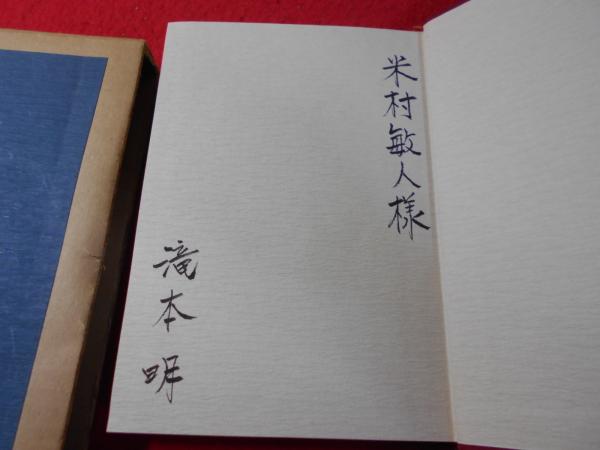 米村敏人様
滝本明